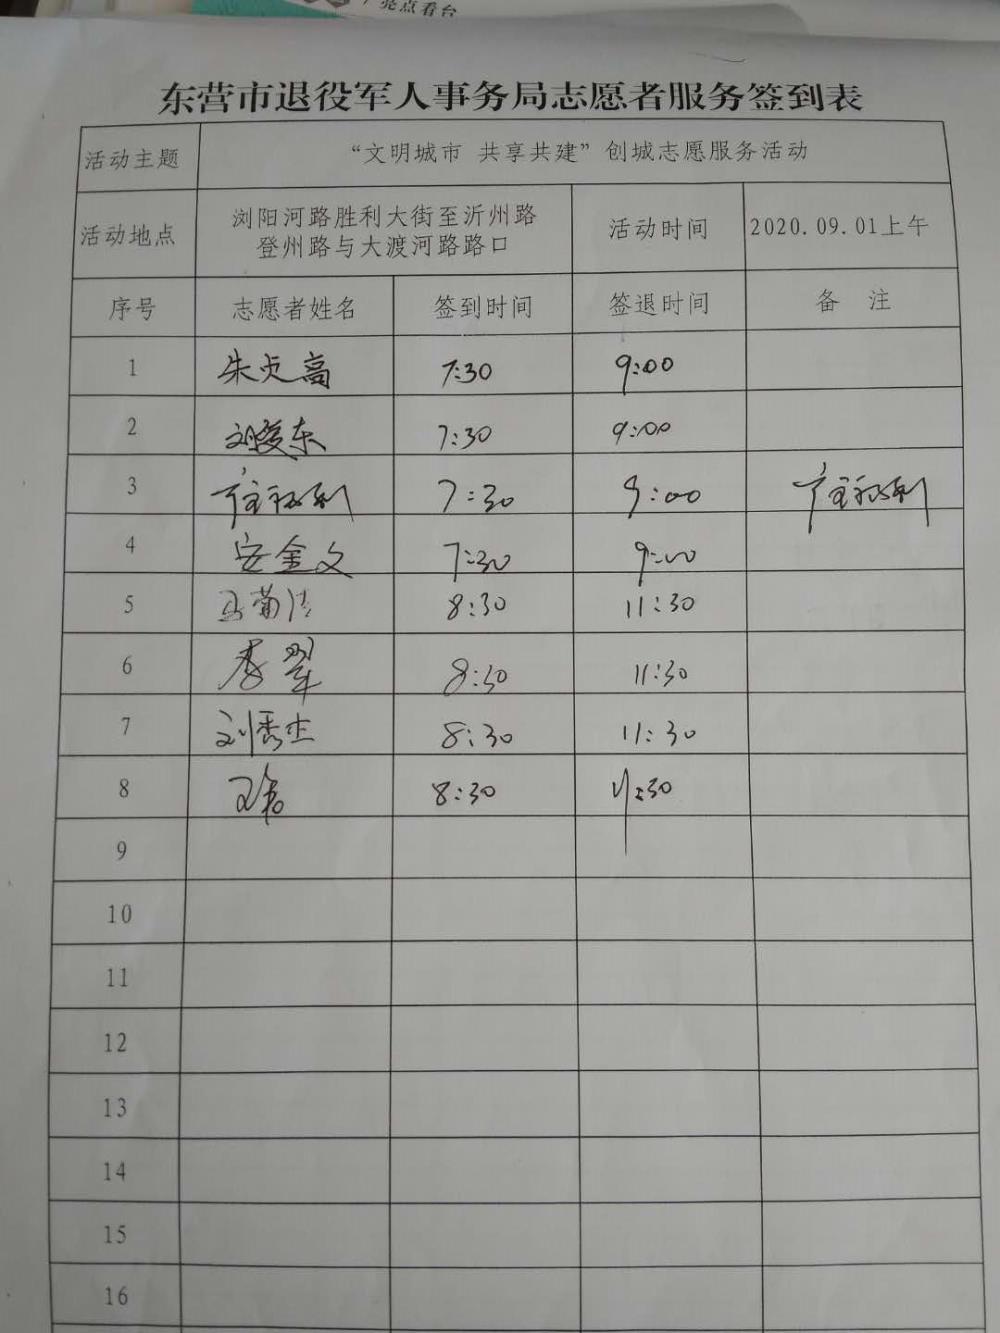 亮点看台
东营市退役军人事务局志愿者服务签到表
活动主题 “文明城市 共享共建”创城志愿服务活动
活动地点 浏阳河路胜利大街至沂州路 登州路与大渡河路路口 活动时间 2020.09.01上午
序号 志愿者姓名 签到时间 签退时间 备 注
1 朱贞高 7:30 9:00
2 刘爱东 7:30 9:00
3 7:30 9:00
4 安金文 7:30 9:00
5 马菊洁 8:30 11:30
6 李翠 8:30 11:30
7 刘秀杰 8:30 11:30
8 8:30 11:30
9
10
11
12
13
14
15
16